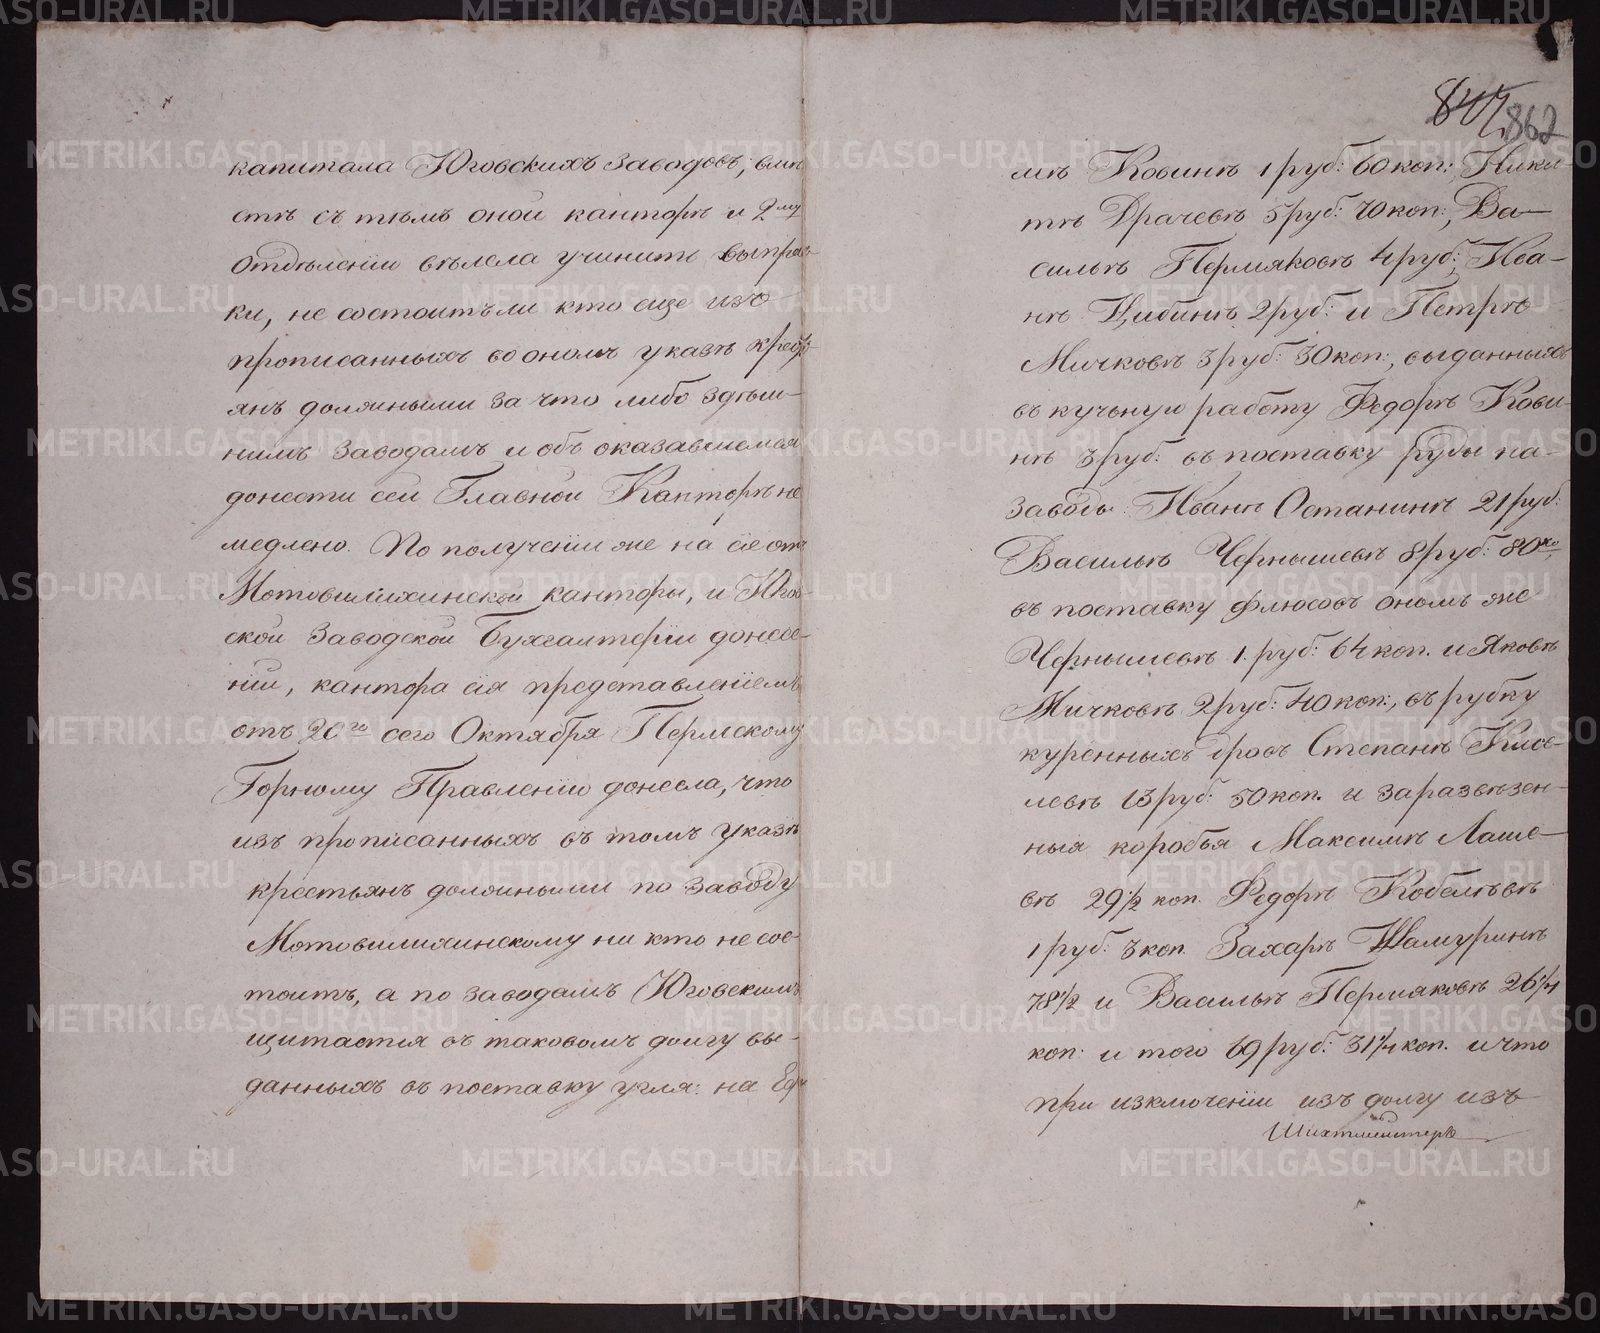 капитала Юговскихъ заводовъ, вмѣ
стѣ съ тѣмъ оной канторѣ и 2му
отдѣленiю велела учинить выправ-
ки, не состоитъ ли кто еще изъ
прописанныхъ во ономъ указѣ кресть-
янъ должными за что либо здѣш-
нимъ заводамъ и объ оказавшемся
донести сей Главной Канторѣ не
медлено. По полученiи же на сiе отъ
Мотовилихинской канторы, и Югов-
ской заводской Бухгалтерiи донесе-
нiи, кантора сiя представленiемъ
отъ 20го сего Октября Пермскому
Горному Правленiю донесла, что
изъ прописанныхъ въ томъ указѣ
крестьянъ должными по заводу
Мотовилихинскому ни кто не сос-
тоитъ, а по заводамъ Юговскимъ
щитается въ таковомъ долгу вы-
данныхъ въ поставку угля: на
847 862
мѣ Ковинѣ 1 руб: 60 коп:, Ники-
тѣ Драчевѣ 5 руб: 70 коп:, Ва-
сильѣ Пермяковѣ 4 руб:, Ива-
нѣ Цибинѣ 2 руб: и Петрѣ
Мичковѣ 3 руб: 30 коп:, выданныхъ
въ кучьную работу Федорѣ Кови-
нѣ 3 руб: въ поставку руды на
заводъ Иванѣ Останинѣ 21 руб:
Васильѣ Чернышевѣ 8 руб: 80 ко
въ поставку флюсовъ ономъ же
Чернышевѣ 1 руб: 64 коп. и Яковѣ
Мичковѣ 2 руб: 40 коп:, въ рубку
куренныхъ дровъ Степанѣ Кисе-
левѣ 13 руб: 50 коп. и за развезен-
ныя коробья Максимѣ Лаше-
вѣ 29 1/2 коп. Федорѣ Кобелевѣ
1 руб: 3 коп. Захарѣ Шамуринѣ
78 1/2 и Васильѣ Пермяковѣ 26 1/4
коп: и того 69 руб: 31 1/4 коп. и что
при изключенiи изъ долгу изъ
Шихтмейстеръ